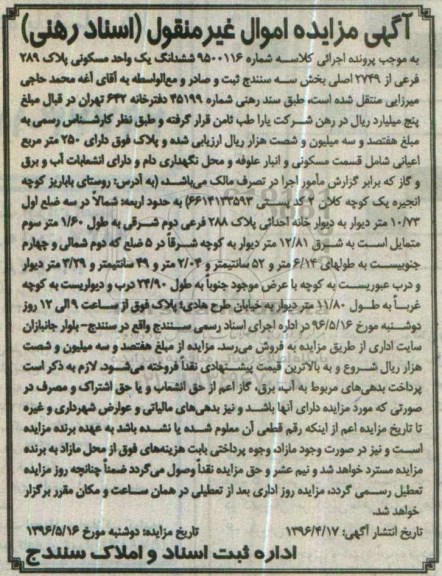 آگهی مزایده اموال غیرمنقول (اسناد رهنی)
به موجب پرونده اجرائی کلاسه شماره ۹۵۰۰۱۱۶ ششدانگ یک واحد مسکونی پلاک ۲۸۹
فرعی از ۲۷۴۹ اصلی بخش سه سنندج ثبت و صادر و مع‌الواسطه به آقای آغه محمد حاجی
میرزایی منتقل شده است، طبق سند رهنی شماره ۴۵۱۹۹ دفترخانه ۶۴۲ تهران در قبال مبلغ
پنج میلیارد ریال در رهن شرکت یارا طب ثامن قرار گرفته و طبق نظر کارشناس رسمی به
مبلغ هفتصد و سه میلیون و شصت هزار ریال ارزیابی شده و پلاک فوق دارای ۲۵۰ متر مربع
اعیانی شامل قسمت مسکونی و انبار علوفه و محل نگهداری دام و دارای انشعابات آب و برق
و گاز که برابر گزارش مأمور اجرا در تصرف مالک می‌باشد، (به آدرس: روستای باباریز کوچه
انجیره یک کوچه کلان ۲ کد پستی ۶۶۱۴۱۳۳۵۹۳) به حدود اربعه: شمالاً در سه ضلع اول
۱۰/۷۳ متر دیوار به دیوار خانه احداثی پلاک ۲۸۸ فرعی دوم شرقی به طول ۱/۶۰ متر سوم
متمایل است به شرق ۱۲/۸۱ متر دیوار به کوچه شرقاً در ۵ ضلع که دوم شمالی و چهارم
جنوبیست به طولهای ۶/۱۴ متر و ۵۲ سانتیمتر و ۲/۰۴ متر و ۴۹ سانتیمتر و ۳/۲۹ متر دیوار
و درب عبوریست به کوچه با عرض موجود جنوباً به طول ۲۴/۹۰ درب و دیواریست به کوچه
غرباً به طول ۱۱/۸۰ متر دیوار به خیابان طرح هادی؛ پلاک فوق از ساعت ۹ الی ۱۲ روز
دوشنبه مورخ ۹۶/۵/۱۶ در اداره اجرای اسناد رسمی سنندج واقع در سنندج- بلوار جانبازان
سایت اداری از طریق مزایده به فروش می‌رسد. مزایده از مبلغ هفتصد و سه میلیون و شصت
هزار ریال شروع و به بالاترین قیمت پیشنهادی نقداً فروخته می‌شود. لازم به ذکر است
پرداخت بدهی‌های مربوط به آب، برق، گاز اعم از حق انشعاب و یا حق اشتراک و مصرف در
صورتی که مورد مزایده دارای آنها باشد و نیز بدهی‌های مالیاتی و عوارض شهرداری و غیره
تا تاریخ مزایده اعم از اینکه رقم قطعی آن معلوم شده یا نشده باشد به عهده برنده مزایده
است و نیز در صورت وجود مازاد، وجوه پرداختی بابت هزینه‌های فوق از محل مازاد به برنده
مزایده مسترد خواهد شد و نیم عشر و حق مزایده نقداً وصول می‌گردد ضمناً چنانچه روز مزایده
تعطیل رسمی گردد، مزایده روز اداری بعد از تعطیلی در همان ساعت و مکان مقرر برگزار
خواهد شد.
تاریخ انتشار آگهی: ۱۳۹۶/۴/۱۷ تاریخ مزایده: دوشنبه مورخ ۱۳۹۶/۵/۱۶
اداره ثبت اسناد و املاک سنندج